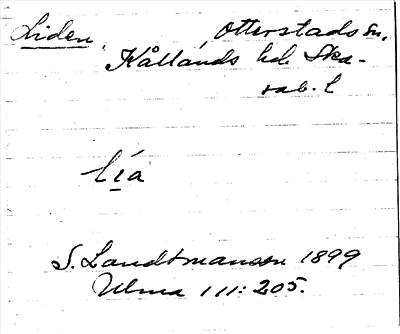 Liden, Otterstads sn,
Kållands hd. Ska-
rab. l
lia
S. Landtmanson 1899
Ulma 111:205.